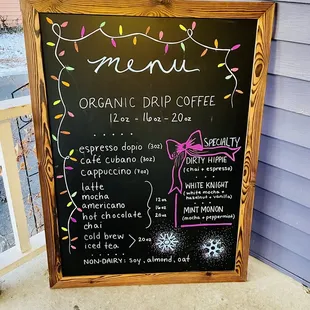 menu
ORGANIC DRIP COFFEE
12oz - 16oz - 20oz
espresso dopio (3oz)
café cubano (3oz)
cappuccino
latte
mocha
americano
hot chocolate
chai
12oz
16oz
20oz
cold brew
iced tea
20oz
SPECIALTY
DIRTY HIPPIE
(chai + espresso)
WHITE KNIGHT
(white mocha +
hazelnut + vanilla)
MINT MONON
(mocha + peppermint)
NON-DAIRY: soy, almond, oat